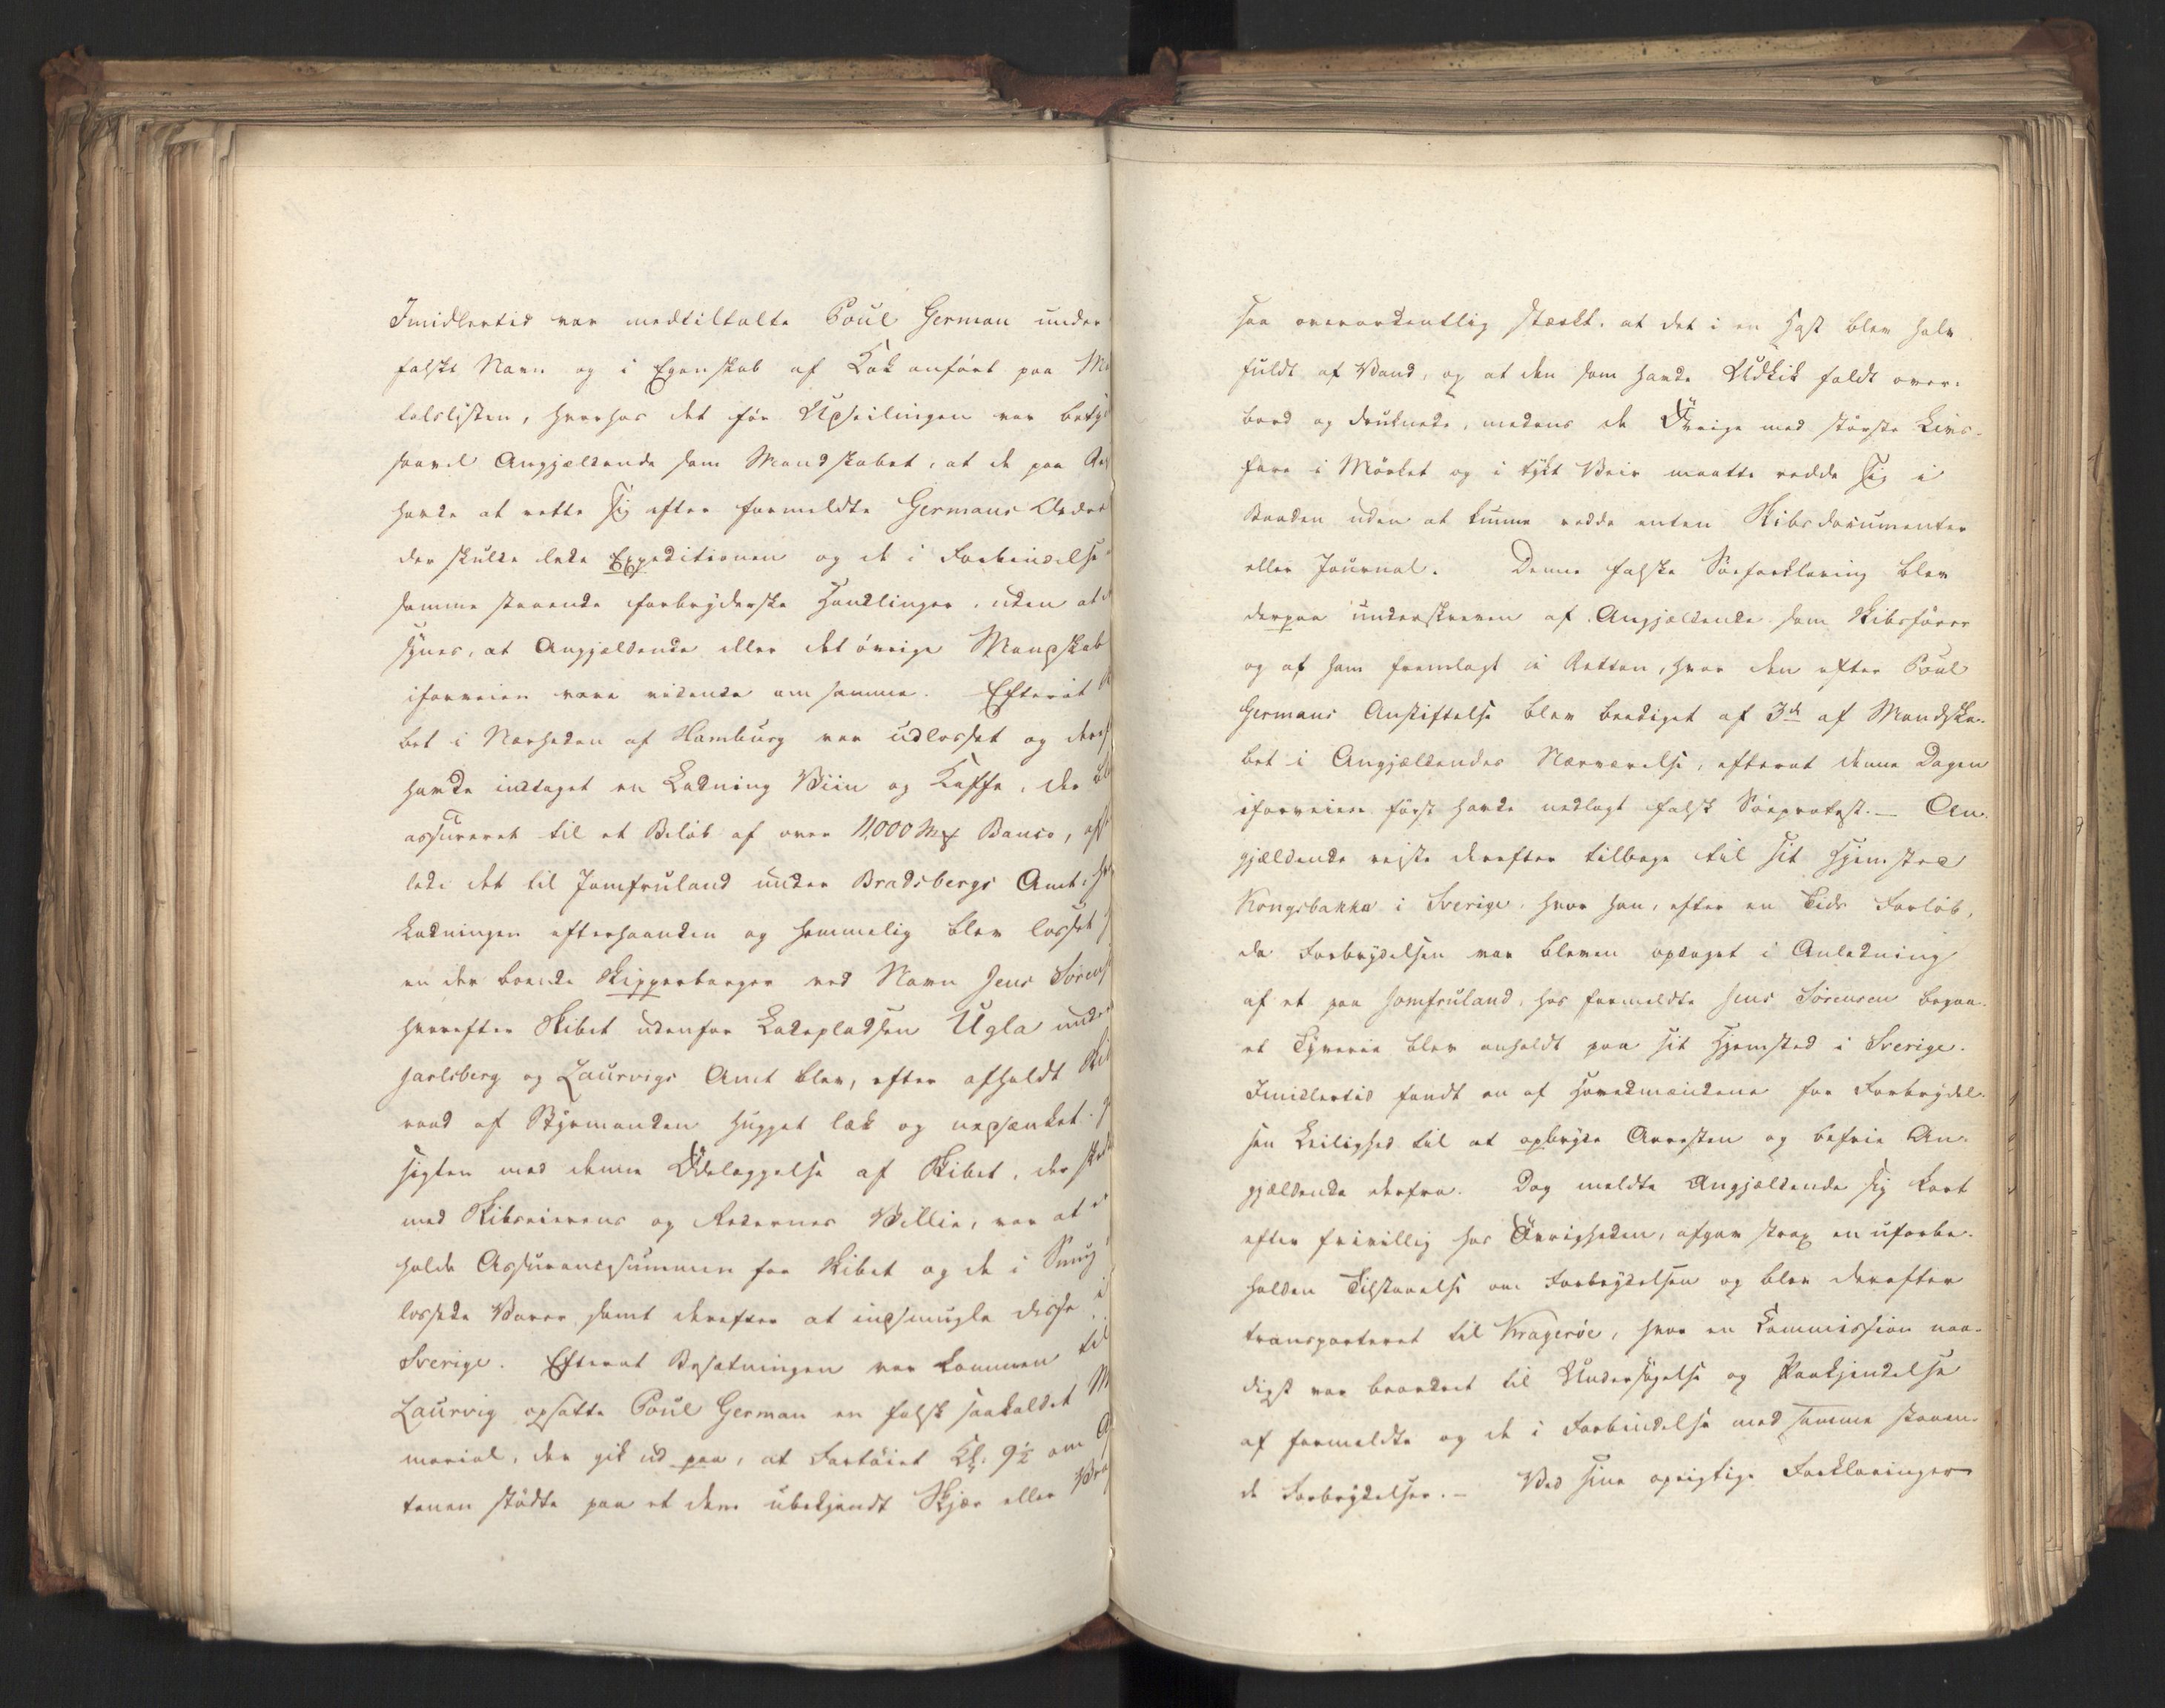 Imidlertid var medtiltalte Poul German under
falskt Navn og i Egenskab af Kok anført paa
talslisten, hvorhos det før Udseilingen var
saavel Angjældende som Mandskabet, at de paa
havde at rette sig efter formeldte Germans Ordre
der skulde lede Expeditionen og de i Forbindelse
samme staaende forbryderske Handlinger, uden at
synes, at Angjældende eller det øvrige Mandskab
iforveien vare vidende om samme. Efterat
bet i Nærheden af Hamburg var udlosset og
havde indtaget en Ladning Viin og Kaffe, der
assureret til et Beløb af over 11,000 Mk Banco,
lede det til Jomfruland under Bradsbergs Amt,
Ladningen efterhaanden og hemmelig blev losset
en der boende Skipperborger ved Navn Jens Sørens
hvorefter Skibet udenfor Ladepladsen Ugla under
Jarlsberg og Laurvigs Amt blev, efter afholdt
raad af Styrmanden hugget læk og nedsænket.
sigten med denne Ødelæggelse af Skibet, der
med Skibseierens og Redernes Villie, var at
holde Assurancesummen for Skibet og de i Smug
lossede Varer samt derefter at indsmugle disse i
Sverige. Efterat Besætningen var kommen til
Laurvig opsatte Poul German en falsk saakaldet
morial, der gik ud paa, at Fartøiet Kl. 9½ om
tenen stødte paa et dem ubekjendt Skjær eller
saa overordentlig stærkt, at det i en Hast blev halv
fuldt af Vand, og at den som havde Udkik faldt over-
bord og druknede, medens de Øvrige med største Livs-
fare i Mørket og i tykt Veir maatte redde sig i
Baaden uden at kunne redde enten Skibsdocumenter
eller Journal. Denne falske Søeforklaring blev
derpaa underskreven af Angjældende som Skibsfører
og af ham fremlagt i Retten, hvor den efter Poul
Germans Anstiftelse blev beediget af 3de af Mandska-
bet i Angjældendes Nærværelse, efterat denne Dagen
iforveien først havde nedlagt falsk Søeprotest. — An-
gjældende reiste derefter tilbage til sit Hjemsted
Kongsbakka i Sverige, hvor han, efter en Tids Forløb,
da Forbrydelsen var bleven opdaget i Anledning
af et paa Jomfruland, hos formeldte Jens Sørensen begaa-
et Tyverie blev anholdt paa sit Hjemsted i Sverige.
Imidlertid fandt en af Hovedmændene for Forbrydel-
sen Leilighed til at opbryde Arresten og befrie An-
gjældende derfra. Dog meldte Angjældende sig kort
efter frivillig hos Øvrigheden, afgav strax en uforbe-
holden Tilstaaelse om Forbrydelsen og blev derefter
transporteret til Kragerøe, hvor en Commission naa-
digst var beordret til Undersøgelse og Paakjendelse
af formeldte og de i Forbindelse med samme staaen-
de Forbrydelser. — Ved sine oprigtige Forklaringer